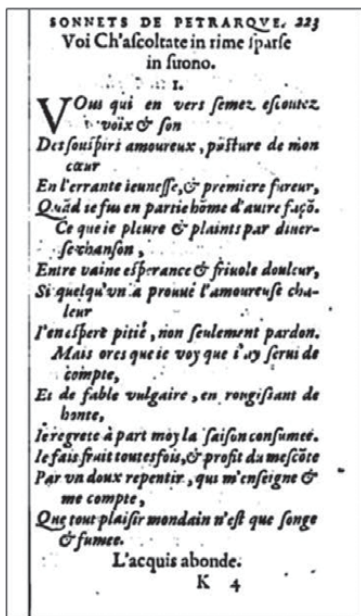 SONNETS DE PETRARQVE. 223
Voi Ch'aſcoltate in rime ſparſe
in ſuono.
I.
VOus qui en vers ſemez eſcoutez
voix & ſon
Des ſouſpirs amoureux, paſture de mon
cœur
En l'errante ieuneſſe, & premiere fureur,
Quãd ie fus en partie hõme d'autre façõ.
Ce que ie pleure & plaints par diuer-
ſe chanſon,
Entre vaine eſperance & friuole douleur,
Si quelqu'vn a prouué l'amoureuſe cha-
leur
I'en eſpere pitié, non ſeulement pardon.
Mais ores que ie voy que i'ay ſerui de
compte,
Et de fable vulgaire, en rougiſſant de
honte,
Ie regrete à part moy la ſaiſon conſumee.
Ie fais fruit toutesfois, & profit du meſcõte
Par vn doux repentir, qui m'enſeigne &
me compte,
Que tout plaiſir mondain n'eſt que ſonge
& fumee.
L'acquis abonde.
K 4